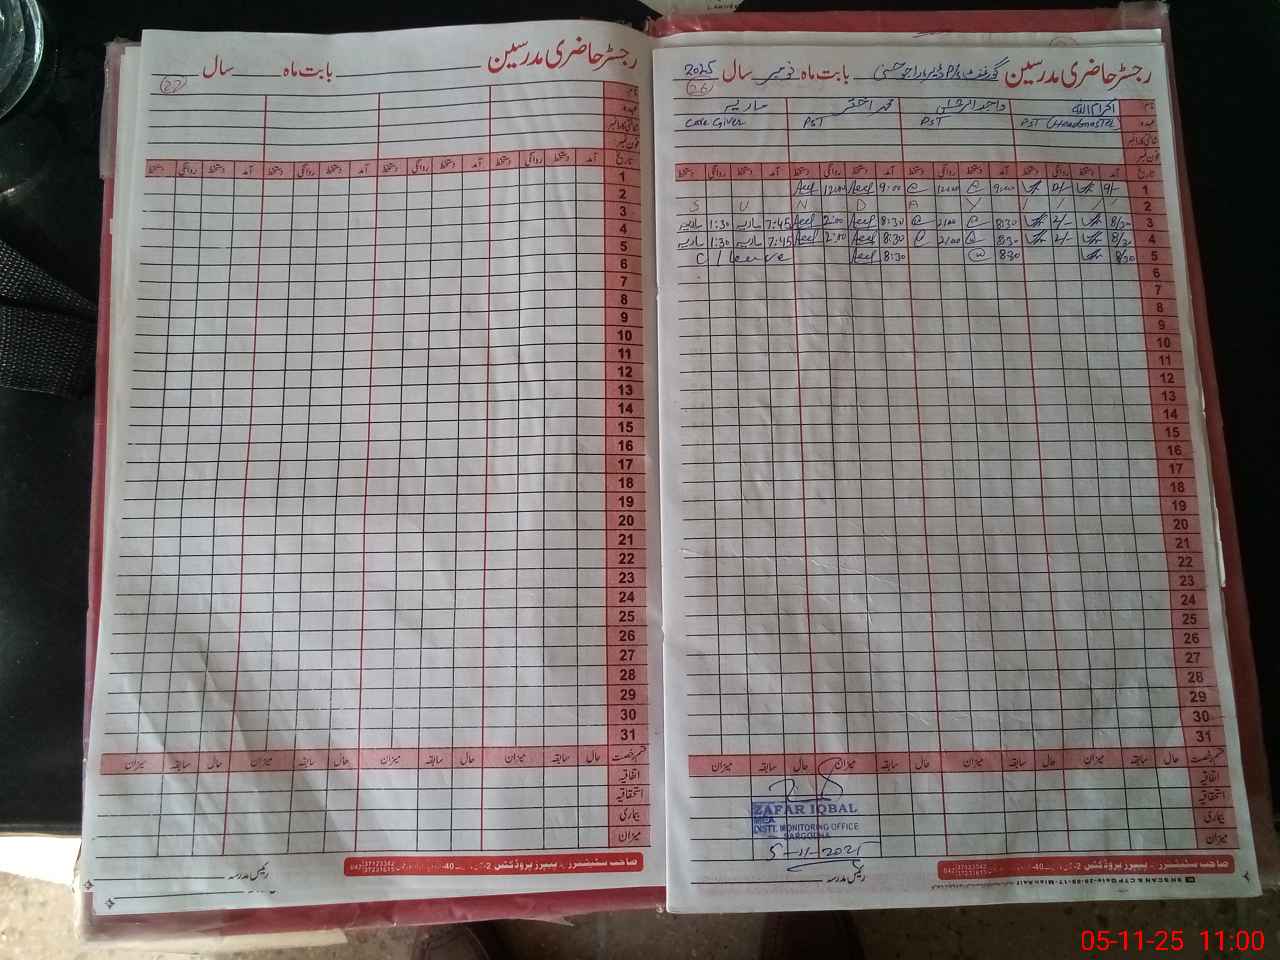 رجسٹر حاضری مدرسین گورنمنٹ بابت ماہ نومبر سال 2025
26
نام اکرام اللہ واجد محمد ماریہ
عہدہ PST (Headmaster) PST PST Care Giver
شناختی کارڈ نمبر
فون نمبر
تاریخ آمد دستخط روانگی دستخط آمد دستخط روانگی دستخط آمد دستخط روانگی دستخط آمد دستخط روانگی دستخط
1 9/- 9:00 12:00 9:00 12:00
2 S U N D A Y
3 8/30 2/- 8:30 2:00 8:30 2:00 7:45 ماریہ 1:30 ماریہ
4 8/30 2/- 8:30 2:00 8:30 2:00 7:45 ماریہ 1:30 ماریہ
5 8/30 8:30 8:30 C/Leave
6
7
8
9
10
11
12
13
14
15
16
17
18
19
20
21
22
23
24
25
26
27
28
29
30
31
قسم رخصت حال سابقہ میزان حال سابقہ میزان حال سابقہ میزان حال سابقہ میزان
اتفاقیہ
استحقاقیہ
بیماری
میزان
ZAFAR IQBAL
MEA
DISTT. MONITORING OFFICE
SARGODHA
5-11-2025
رئیس مدرسہ
صاحب سٹیشنرز پیپرز پروڈکٹس
رجسٹر حاضری مدرسین بابت ماہ سال
27
نام
عہدہ
شناختی کارڈ نمبر
فون نمبر
تاریخ آمد دستخط روانگی دستخط آمد دستخط روانگی دستخط آمد دستخط روانگی دستخط آمد دستخط روانگی دستخط
1
2
3
4
5
6
7
8
9
10
11
12
13
14
15
16
17
18
19
20
21
22
23
24
25
26
27
28
29
30
31
قسم رخصت حال سابقہ میزان حال سابقہ میزان حال سابقہ میزان حال سابقہ میزان
اتفاقیہ
استحقاقیہ
بیماری
میزان
رئیس مدرسہ
صاحب سٹیشنرز پیپرز پروڈکٹس
05-11-25 11:00